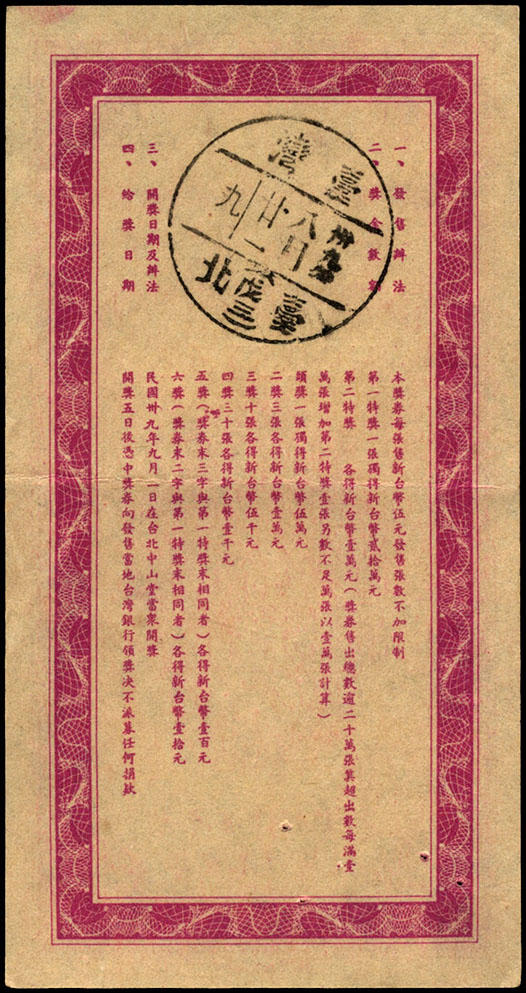 一、發售辦法
本獎券每張售新台幣伍元發售張數不加限制
二、獎金數額
第一特獎一張獨得新台幣貳拾萬元
第二特獎 各得新台幣壹萬元（獎券售出總數逾二十萬張其超出數每滿壹
萬張增加第二特獎壹張另數不足萬張以壹萬張計算）
頭獎一張獨得新台幣伍萬元
二獎三張各得新台幣壹萬元
三獎十張各得新台幣伍千元
四獎三十張各得新台幣壹千元
五獎（獎券末三字與第一特獎末相同者）各得新台幣壹百元
六獎（獎券末二字與第一特獎末相同者）各得新台幣壹拾元
三、開獎日期及辦法
民國卅九年九月一日在台北中山堂當眾開獎
四、給獎日期
開獎五日後憑中獎券向發售當地台灣銀行領獎决不派募任何捐款
臺灣
卅九年
八月
廿一
九
臺北
三